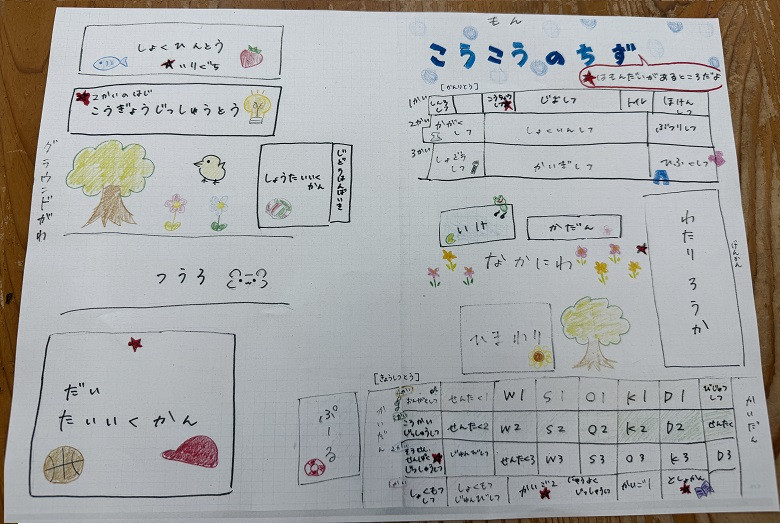 もん
こうこうのちず
★はもんだいがあるところだよ
しょくひんとう
★いりぐち
★2かいのはじ
こうぎょうじっしゅうとう
グラウンドがわ
しょうたいいくかん
じどうはんばいき
つうろ
★
だい
たいいくかん
ぷーる
[かんりとう]
1かい
しんろしつ
じむしつ
トイレ
ほけんしつ
2かい
かがくしつ
しょくいんしつ
ぶつりしつ
3かい
しょどうしつ
かいぎしつ
ひふくしつ
いけ
かだん
なかにわ
わたりろうか
げんかん
ひまわり
[きょうしつとう]
かいだん
おんがくしつ
せんたく1
W1
S1
O1
K1
D1
びじゅつしつ
かいだん
こうかいじっしゅうしつ
せんたく2
W2
S2
O2
K2
D2
せんたく
じゅんびしつ
せんたく3
W3
S3
O3
K3
D3
1かい
しょくもつしつ
しょくもつじゅんびしつ
かいご2
かいご1
としょかん